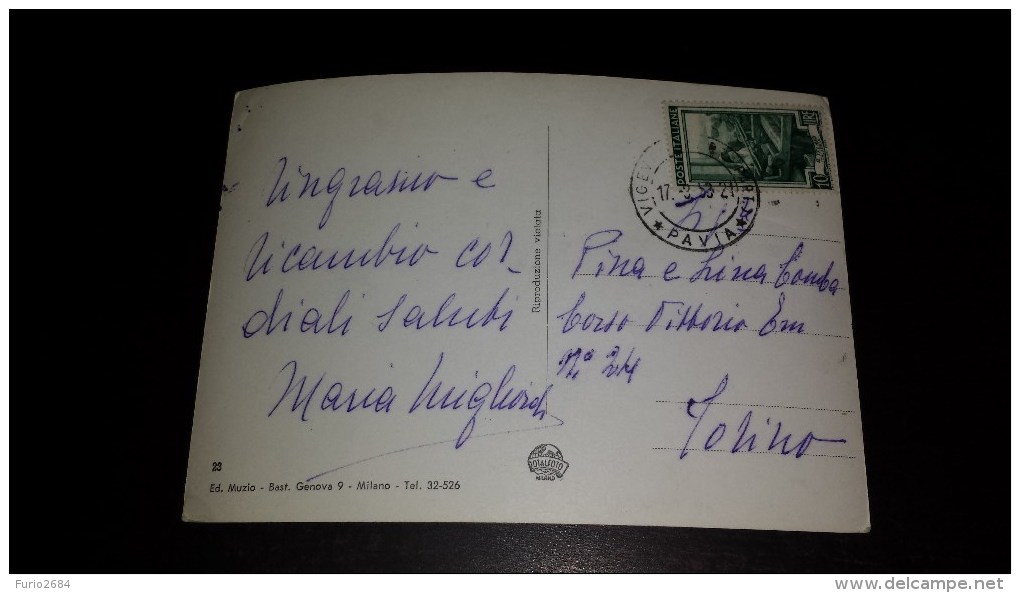 Ringrazio e
ricambio cor_
diali saluti
Maria
Riproduzione vietata
POSTE ITALIANE
10 LIRE
17. 53 21
★ PAVIA ★
Pina e Lina Comba
Corso Vittorio Em
N.° 24
Torino
23
Ed. Muzio - Bast. Genova 9 - Milano - Tel. 32-526
Furio2684
© delcampe.net